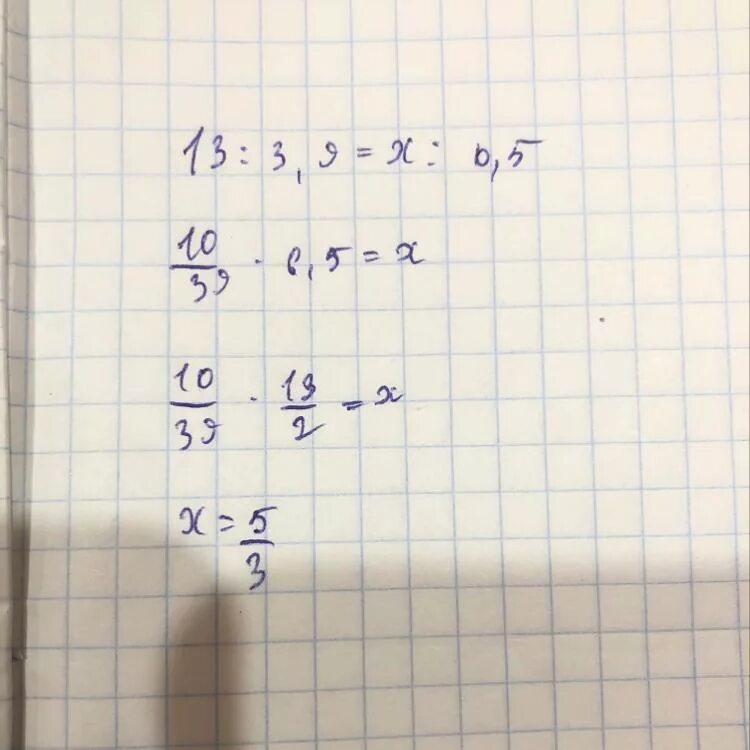 13 : 3,9 = x : 0,5
10/39 · 6,5 = x
10/39 · 13/2 = x
x = 5/3